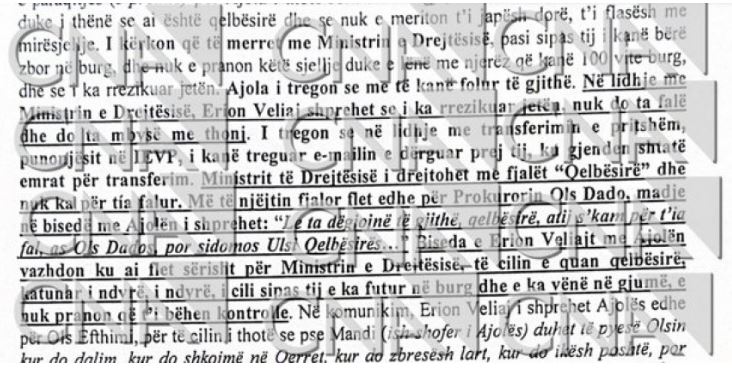 duke i thënë se ai është qelbësirë dhe se nuk e meriton t'i japësh dorë, t'i flasësh me
mirësjellje. I kërkon që të merret me Ministrin e Drejtësisë, pasi sipas tij i kanë bërë
zbor në burg, dhe nuk e pranon këtë sjellje duke e lënë me njerëz që kanë 100 vite burg,
dhe se i ka rrezikuar jetën. Ajola i tregon se me të kanë folur të gjithë. Në lidhje me
Ministrin e Drejtësisë, Erion Veliaj shprehet se i ka rrezikuar jetën, nuk do ta falë
dhe do ta mbysë me thonj. I tregon se në lidhje me transferimin e pritshëm,
punonjësit në IEVP, i kanë treguar e-mailin e dërguar prej tij, ku gjenden shtatë
emrat për transferim. Ministrit të Drejtësisë i drejtohet me fjalët “Qelbësirë” dhe
nuk ka për t'ia falur. Me të njëjtin fjalor flet edhe për Prokurorin Ols Dado, madje
në bisedë me Ajolën i shprehet: “Le ta dëgjojnë të gjithë, qelbësirë, atij s'kam për t'ia
fal, as Ols Dados, por sidomos Ulsi Qelbësirës...” Biseda e Erion Veliajt me Ajolën
vazhdon ku ai flet sërisht për Ministrin e Drejtësisë, të cilin e quan qelbësirë,
katunar i ndyrë, i ndyrë, i cili sipas tij e ka futur në burg dhe e ka vënë në gjumë, e
nuk pranon që t'i bëhen kontrolle. Në komunikim, Erion Veliaj i shprehet Ajolës edhe
për Ols Efthimi, për të cilin i thotë se pse Mandi (ish-shofer i Ajolës) duhet të pyesë Olsin
kur do dalim, kur do shkojmë në Qerret, kur do zbresësh lart, kur do ikësh poshtë, por
CNA
CNA
CNA
CNA
CNA
CNA
CNA
CNA